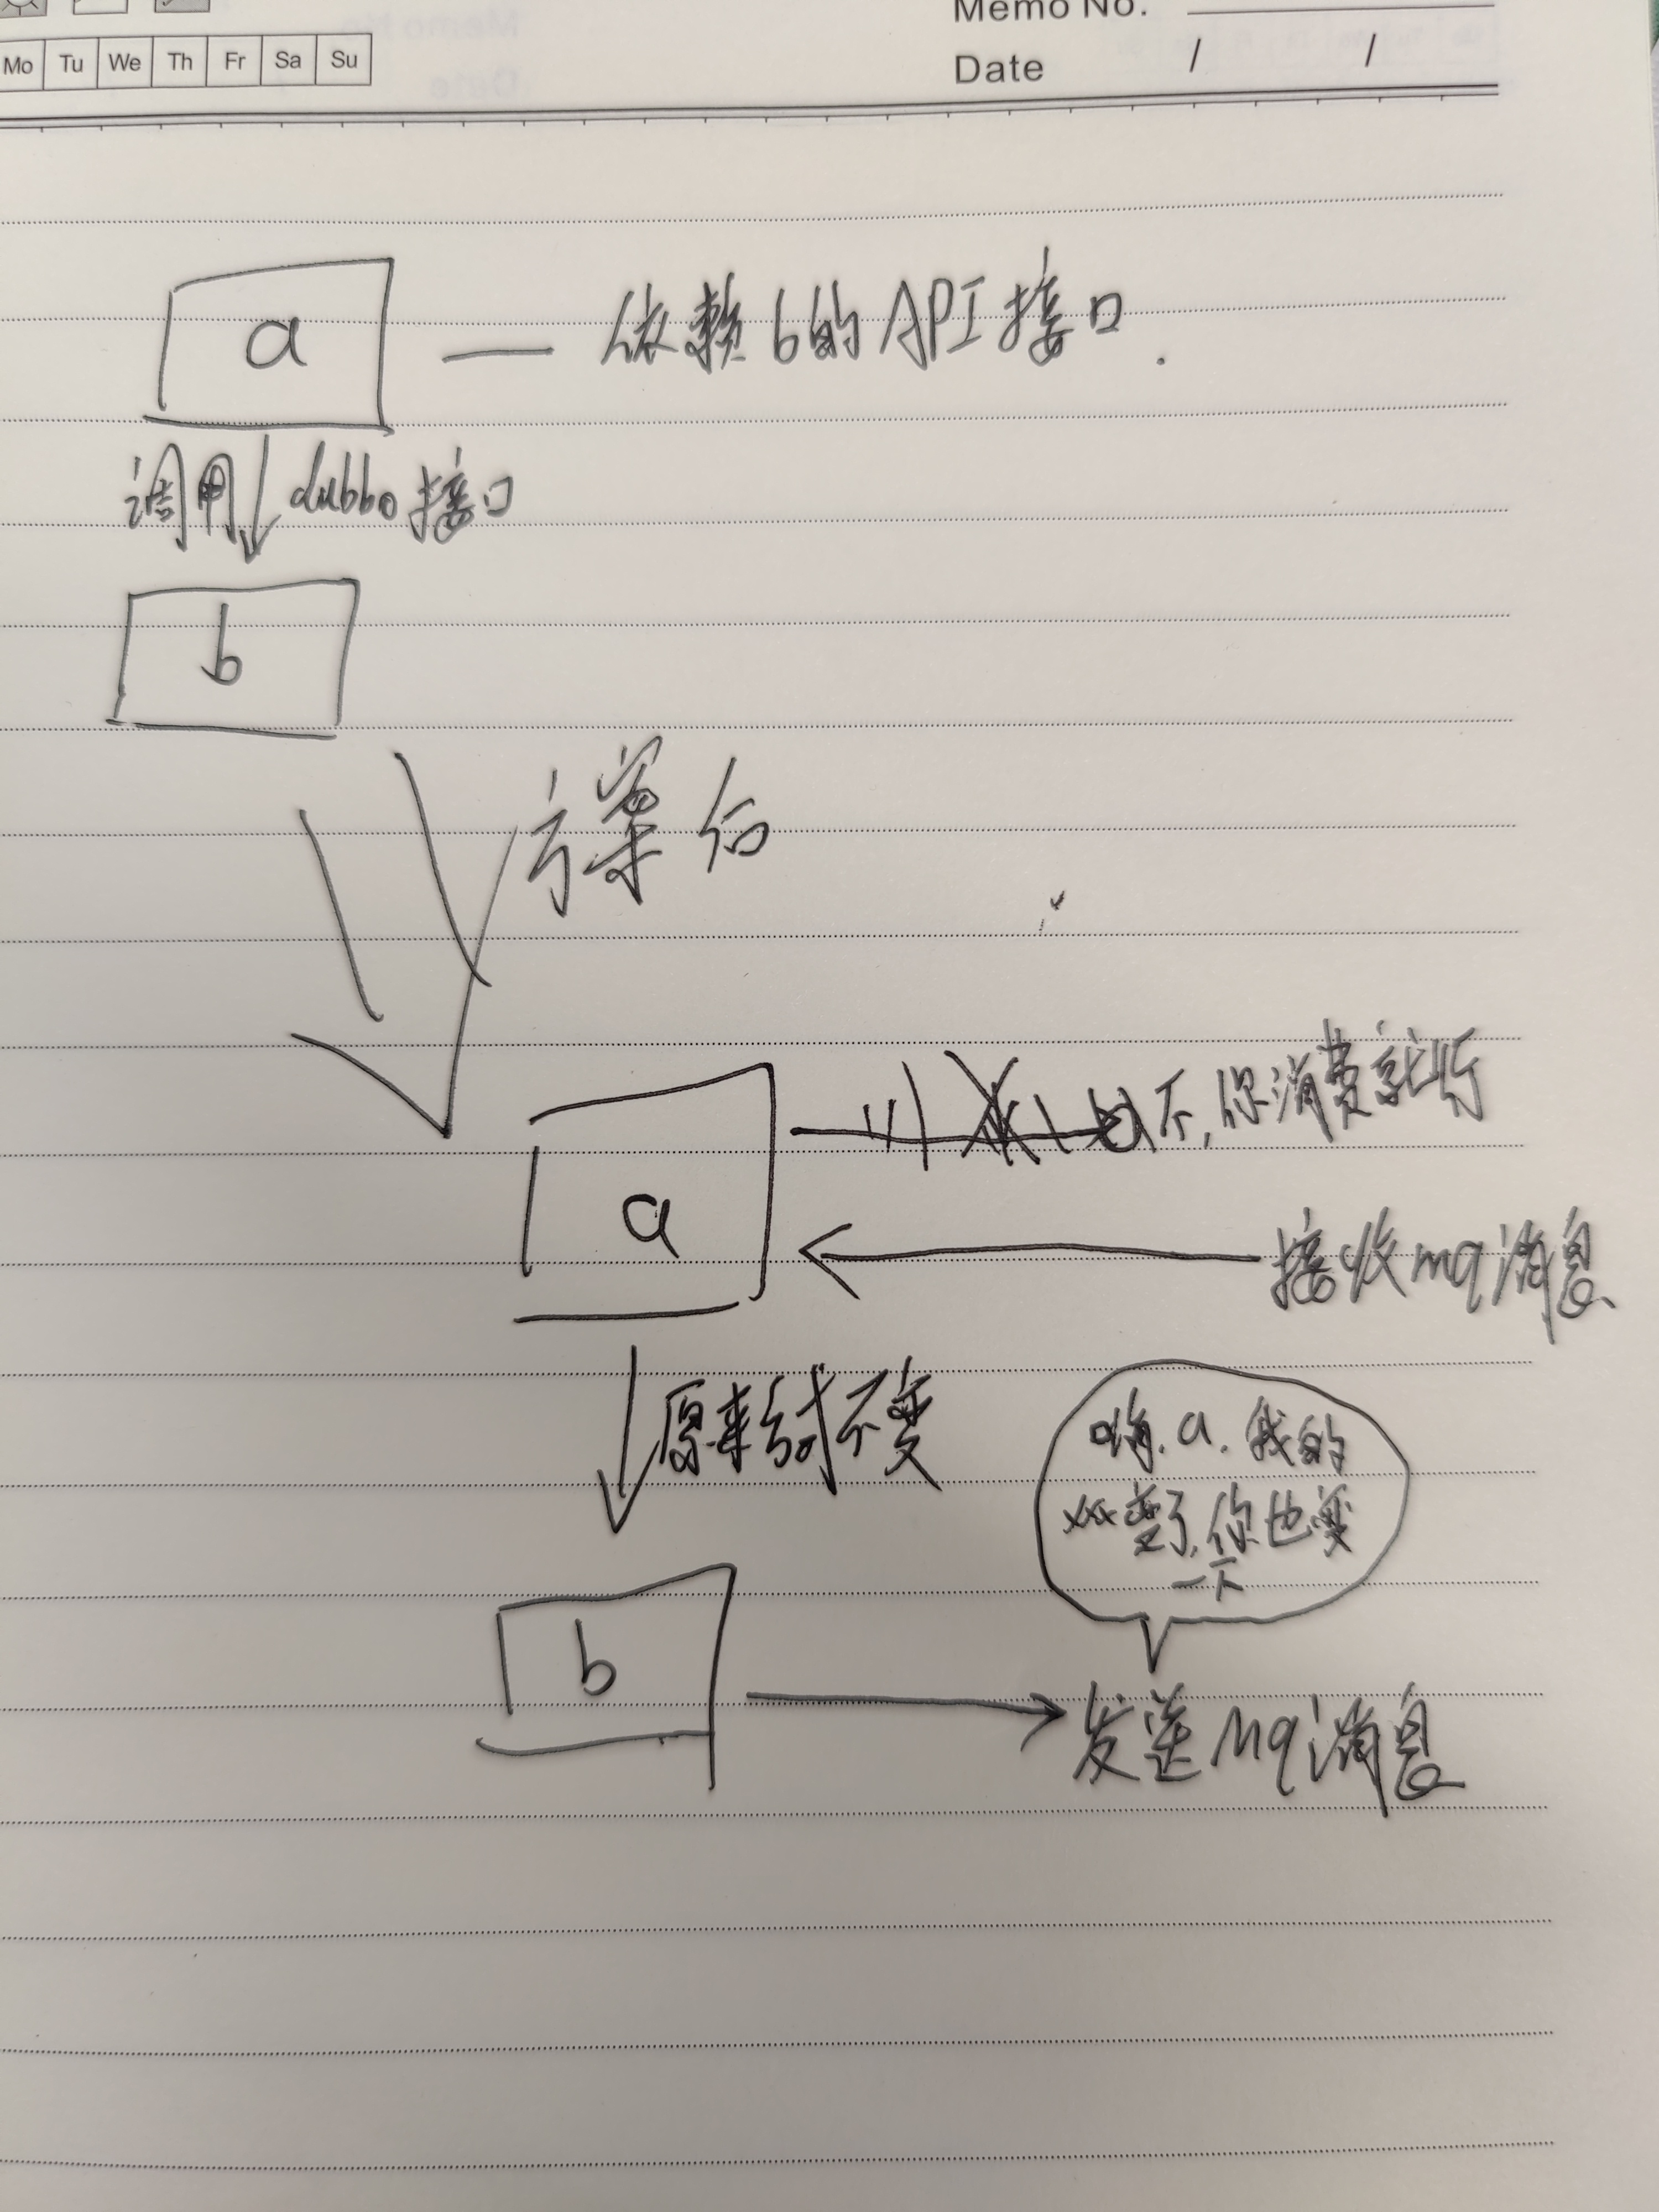 Memo No.
Mo Tu We Th Fr Sa Su
Date / /
a — 依赖b的API接口.
调用 dubbo接口
b
方案后
不,你消费就行
a
接收mq消息
原来的不变
嗨.a.我的
xxx变了,你也变
一下
b
发送mq消息